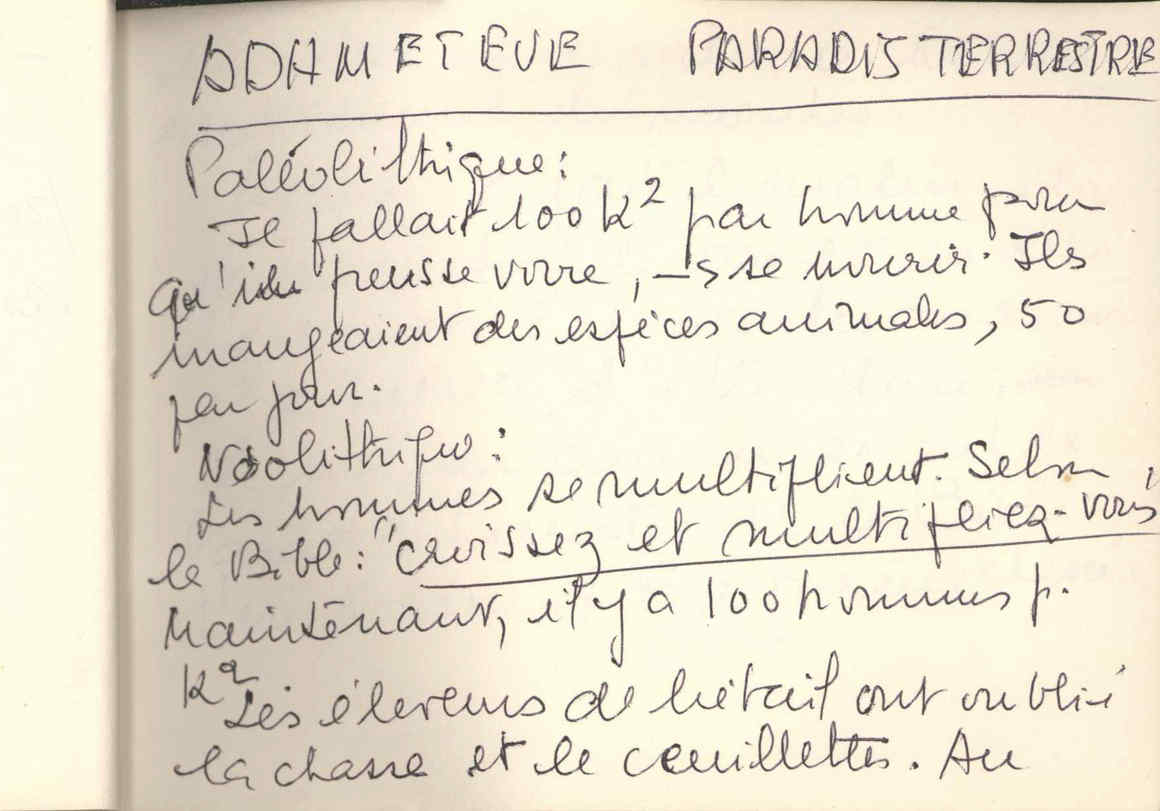 ADAM ET EVE PARADIS TERRESTRE
Paléolithique:
Il fallait 100 k² par homme pour
qu'il puisse vivre, → se nourir. Ils
mangeaient des espèces animales, 50
par jour.
Néolithique:
Les hommes se multiplient. Selon
la Bible: "croissez et multipliez-vous"
Maintenant, il y a 100 hommes p.
k²
Les éleveurs de bétail ont oublié
la chasse et le ceuillettes. Au